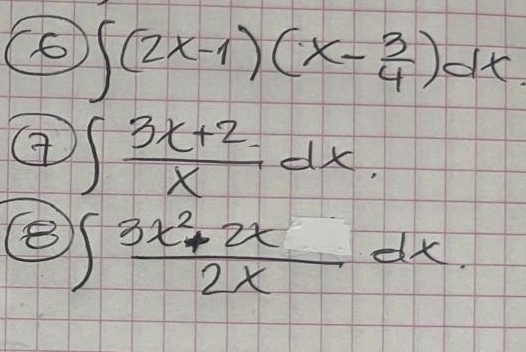 ⑥ ∫(2x-1)(x-3/4)dx.
⑦ ∫ (3x+2)/x dx.
⑧ ∫ (3x²+2x)/2x dx.